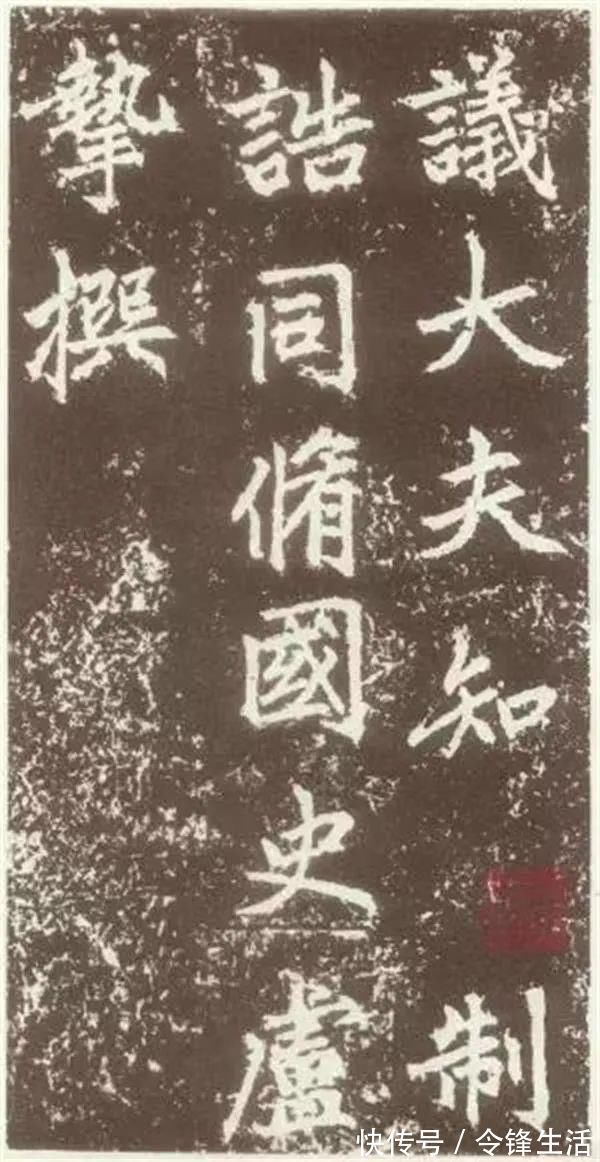 議大夫知制
誥同脩國史盧
摯撰
快传号/令锋生活